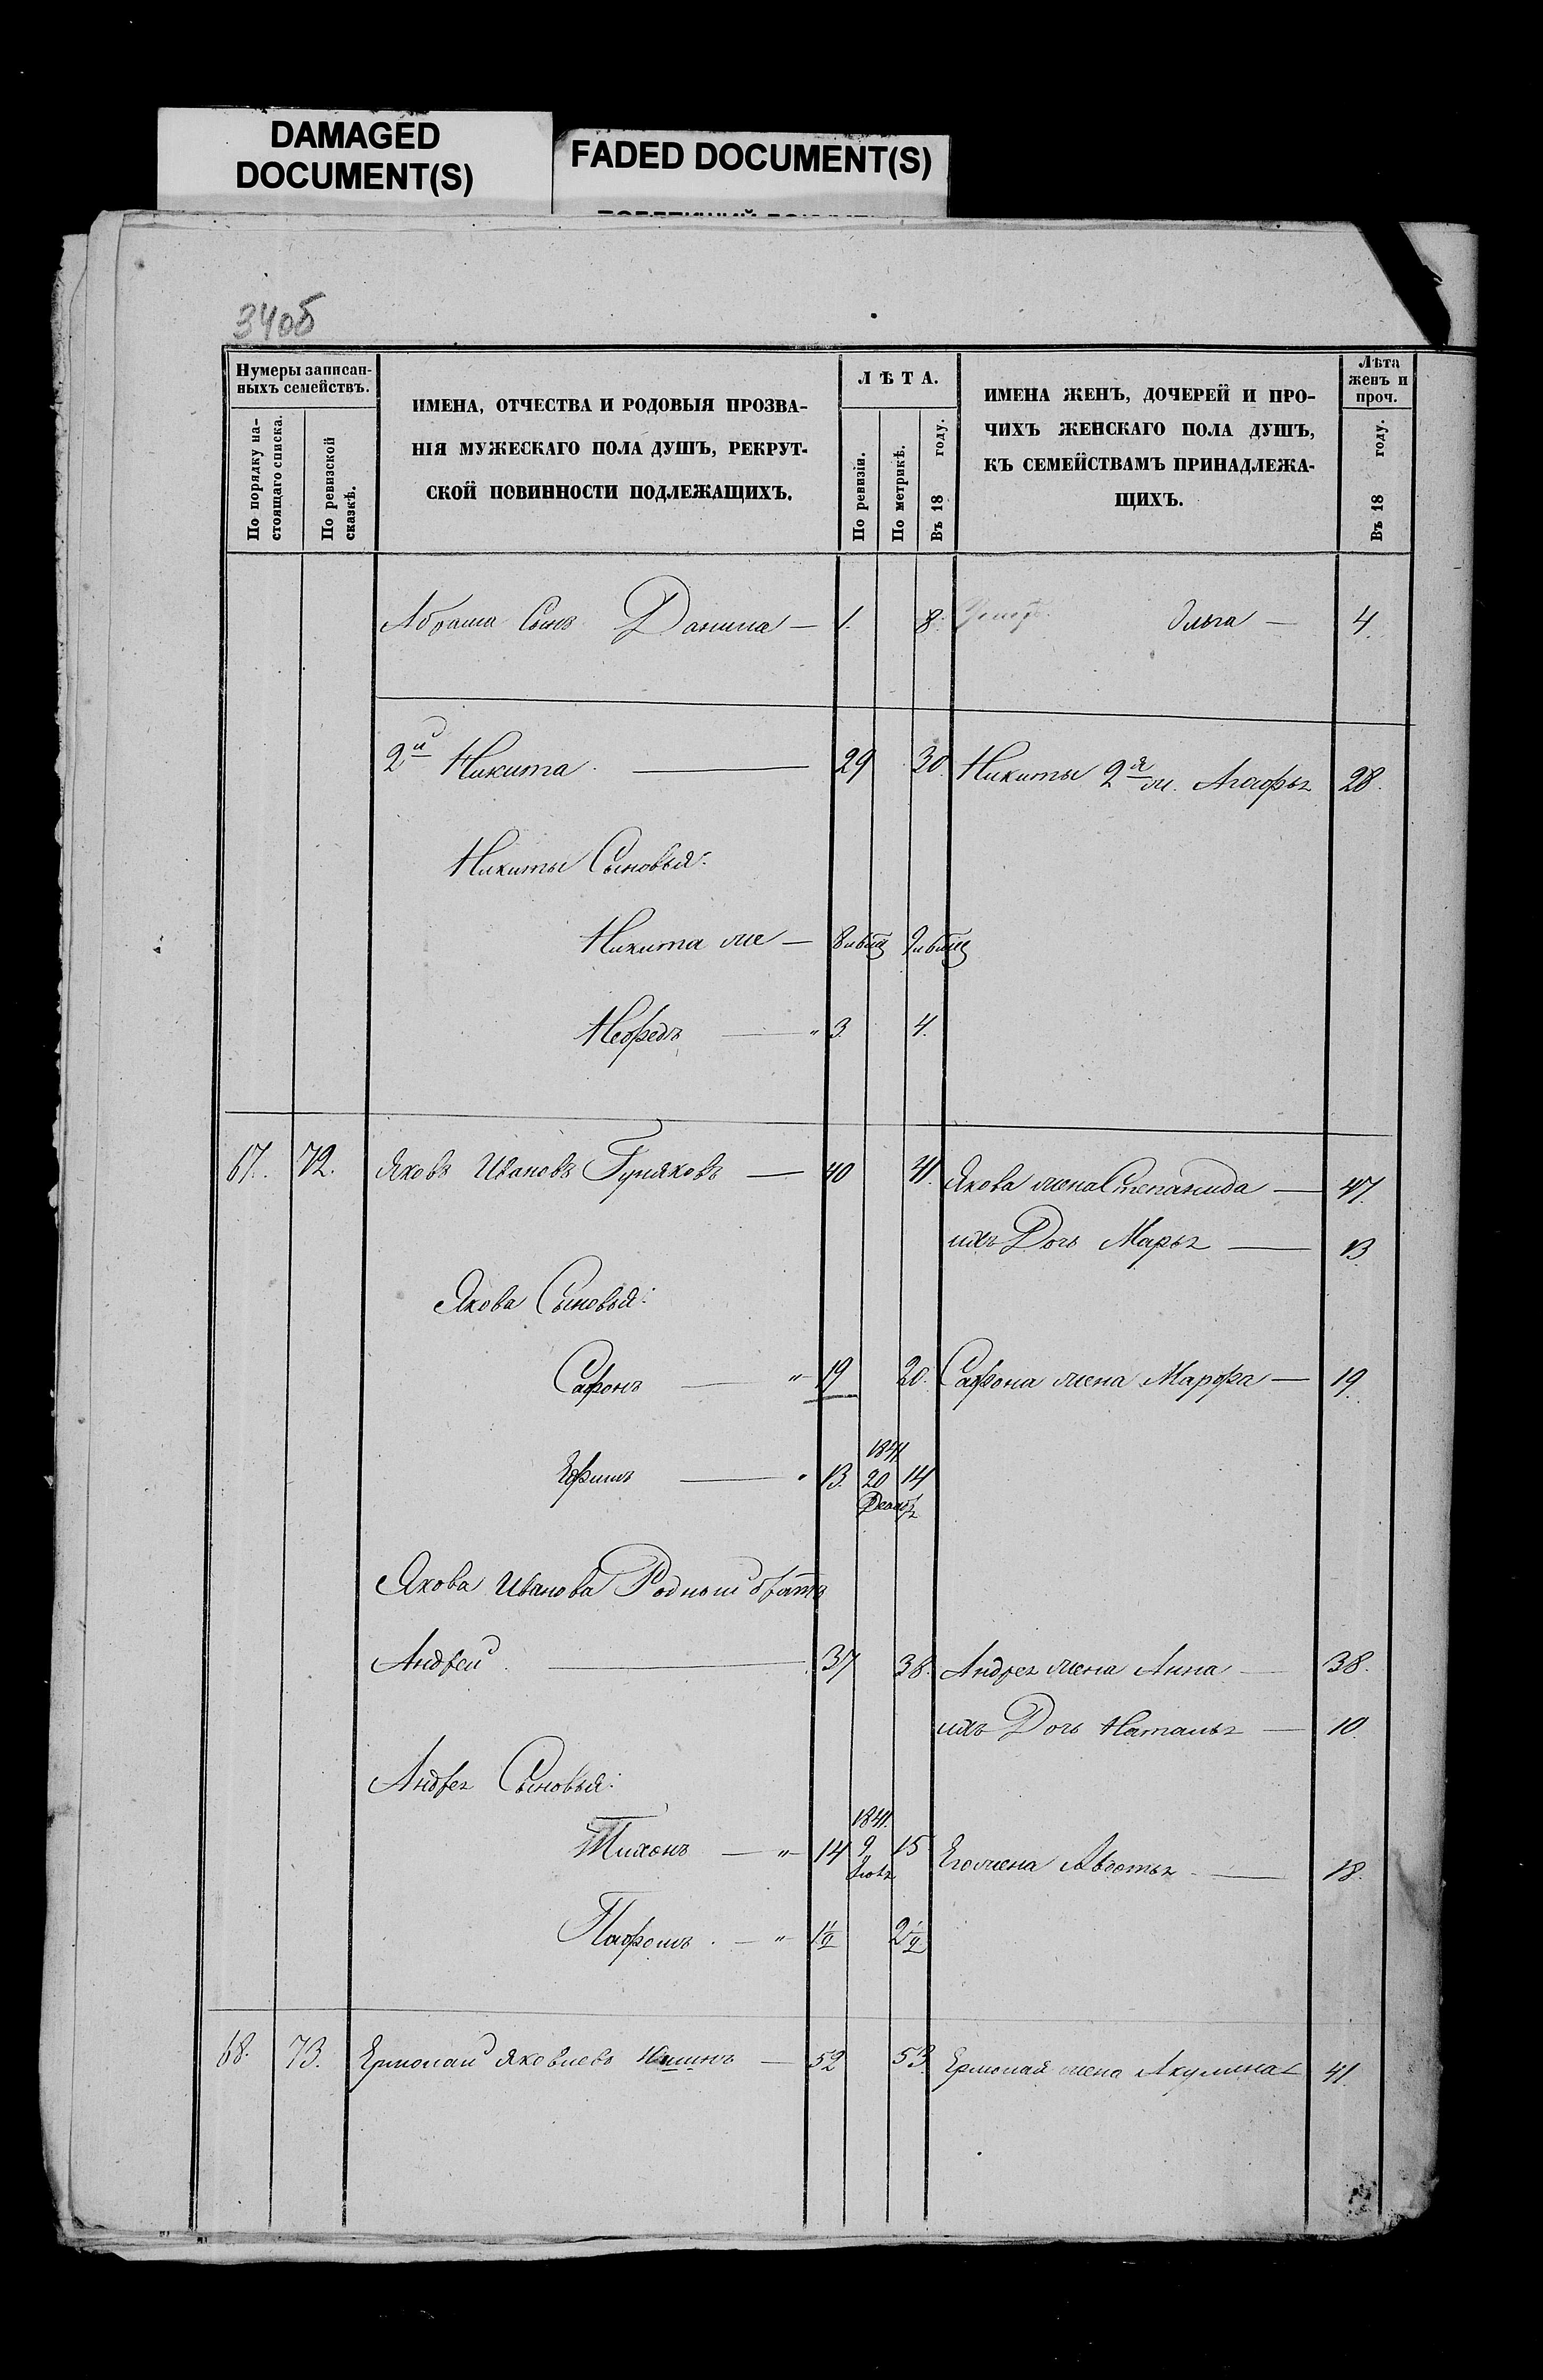 DAMAGED
DOCUMENT(S)
FADED DOCUMENT(S)
34об
Нумеры записан-
ныхъ семействъ.
По порядку на-
стоящаго списка.
По ревизской
сказкѣ.
ИМЕНА, ОТЧЕСТВА И РОДОВЫЯ ПРОЗВА-
НІЯ МУЖЕСКАГО ПОЛА ДУШЪ, РЕКРУТ-
СКОЙ ПОВИННОСТИ ПОДЛЕЖАЩИХЪ.
ЛѢТА.
По ревизіи.
По метрикѣ.
Въ 18 году.
ИМЕНА ЖЕНЪ, ДОЧЕРЕЙ И ПРО-
ЧИХЪ ЖЕНСКАГО ПОЛА ДУШЪ,
КЪ СЕМЕЙСТВАМЪ ПРИНАДЛЕЖА-
ЩИХЪ.
Лѣта
женъ и
проч.
Въ 18 году.
Абрама Сынъ Данила — 1. 8. Ольга — 4.
2й Никита — 29 30. Никиты 2я ж. Агафья 28.
Никиты Сыновья:
Никита же —
Нефедъ — " 3. 4.
67. 72. Яковъ Ивановъ Гуняковъ — 40 41. Якова жена Степанида — 47.
ихъ Дочь Марья — 13.
Якова Сыновья:
Сафонъ — " 19 20. Сафона жена Марфа — 19.
Ефимъ — " 13. 1841 20 Декабр 14
Якова Иванова Родный братъ
Андрей — 37 38. Андрея жена Анна — 38.
ихъ Дочь Наталья — 10.
Андрея Сыновья:
Тихонъ — " 14 1841. 9 15 Его жена Авдотья — 18.
Пафомъ. — "
68. 73. Ермолай Яковлевъ — 52 53. Ермолая жена Акулина 41.